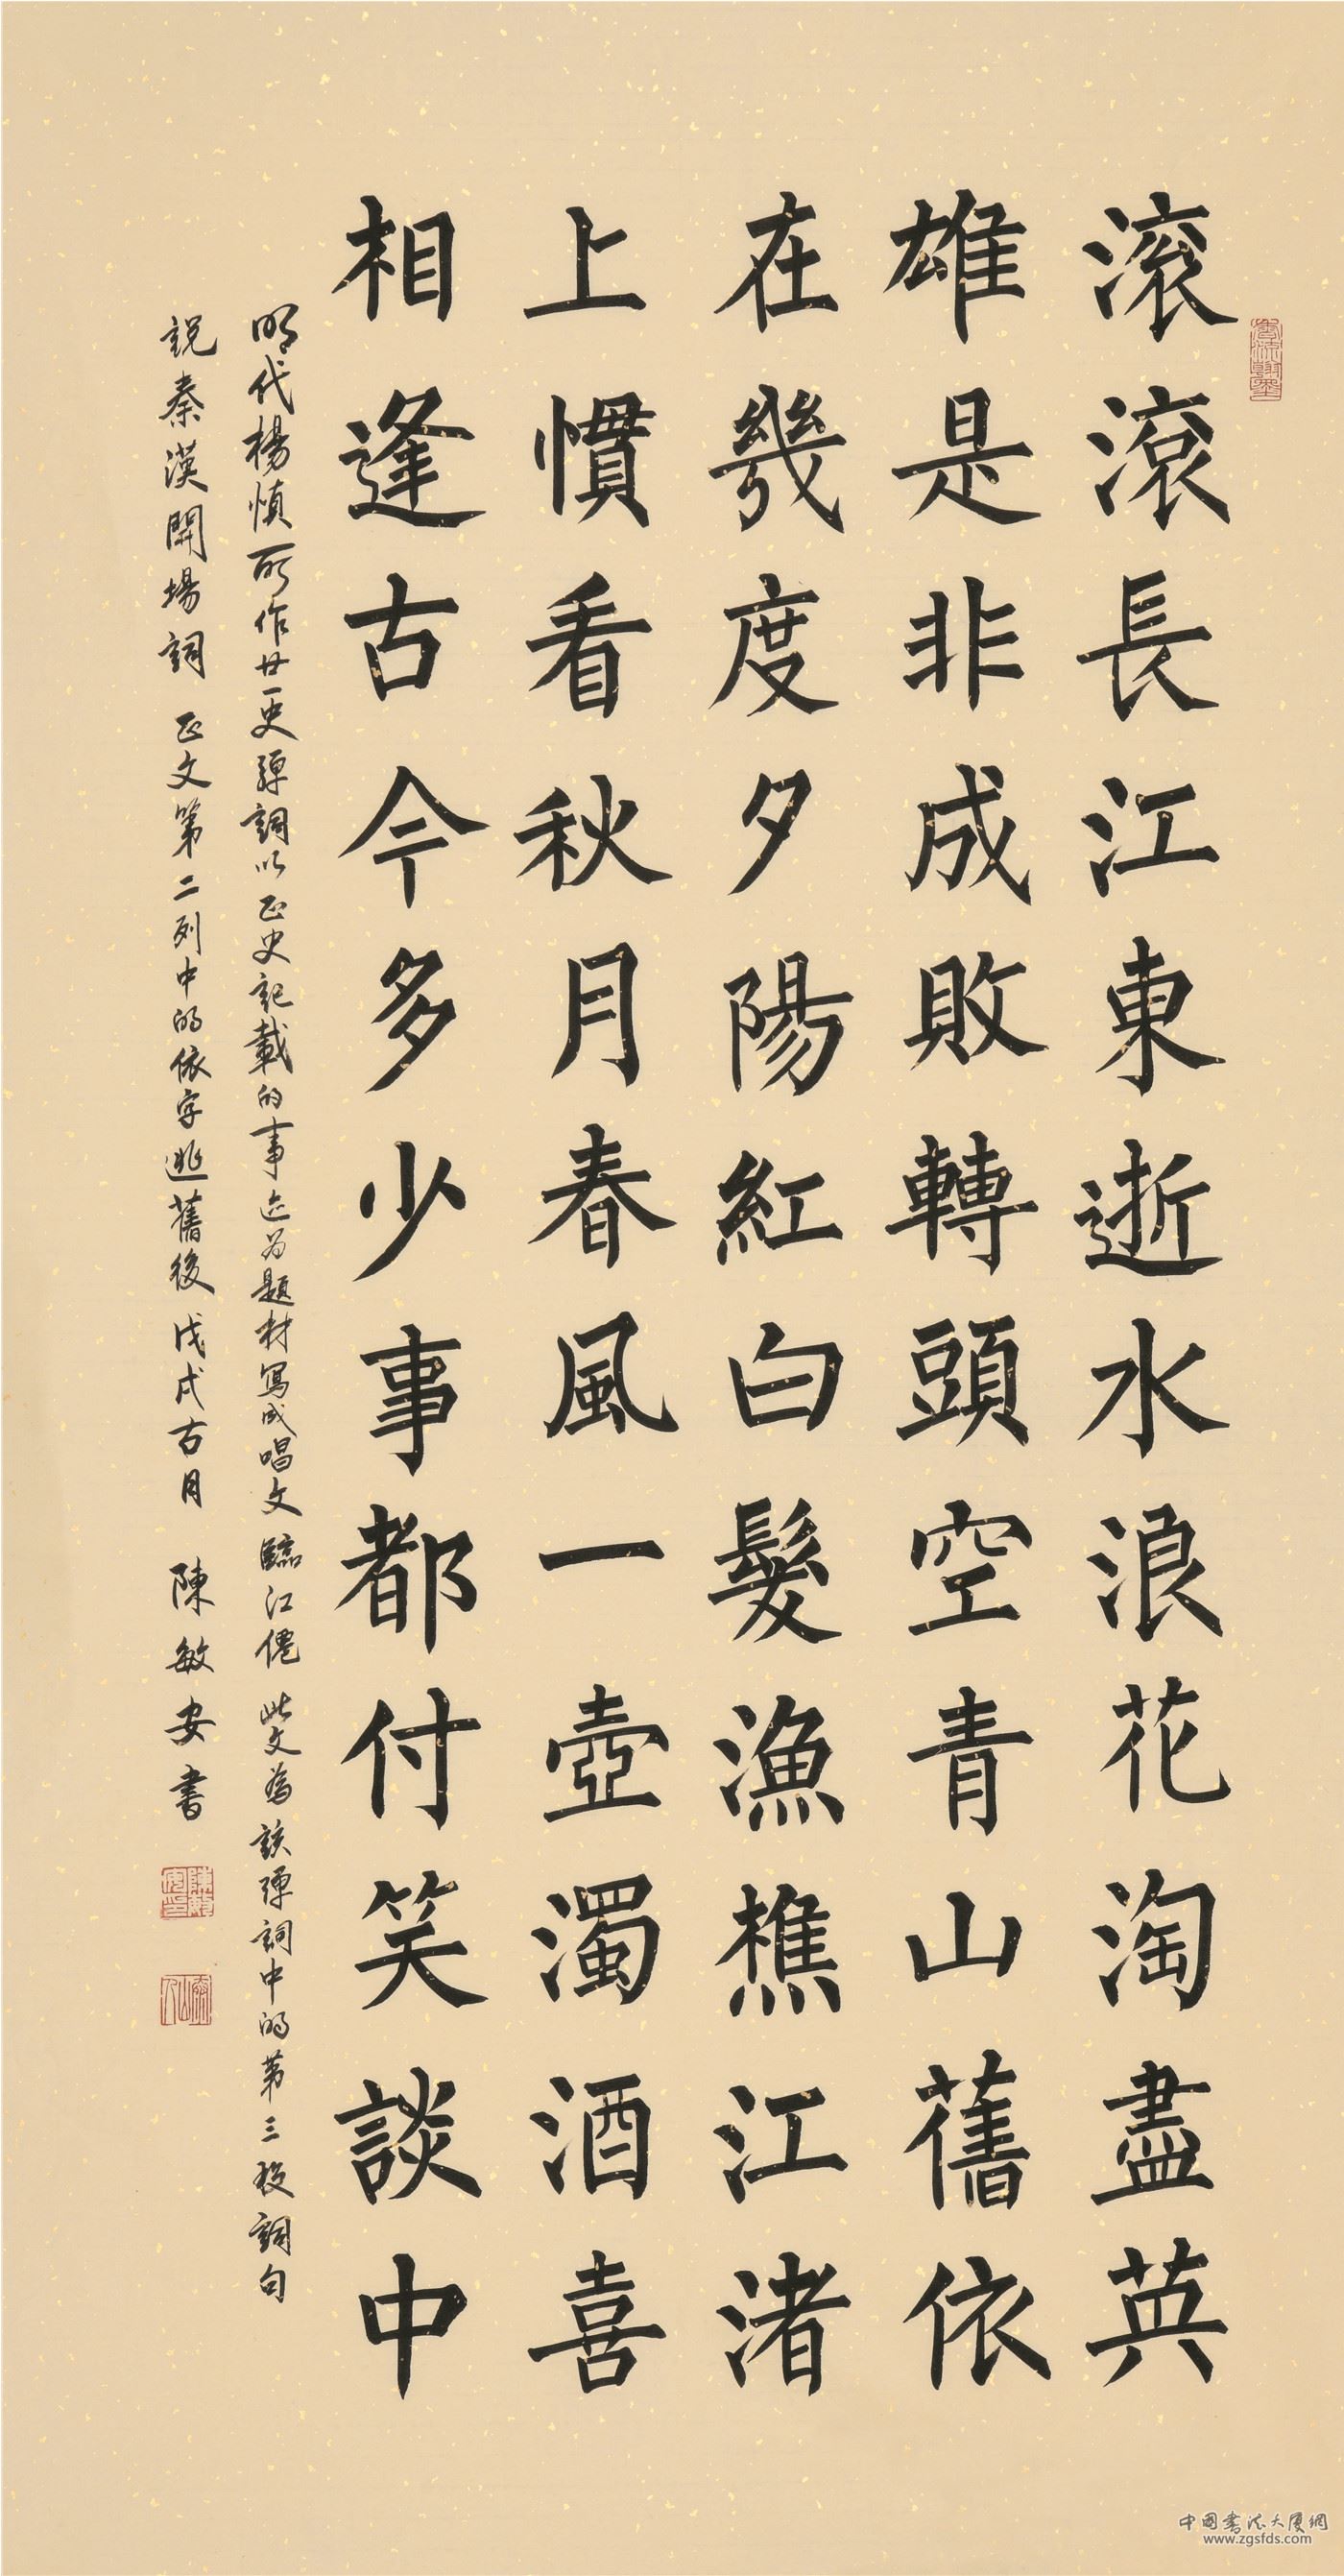 滾滾長江東逝水浪花淘盡英
雄是非成敗轉頭空青山舊依
在幾度夕陽紅白髮漁樵江渚
上慣看秋月春風一壺濁酒喜
相逢古今多少事都付笑談中
明代楊慎所作廿一史彈詞以正史記載的事迹为題材寫成唱文臨江僊此文為該彈詞中的第三段詞句
說秦漢開場詞正文第二列中的依字逃舊後戊戌古月陳敏安書
中国书法大厦網
www.zgsfds.com